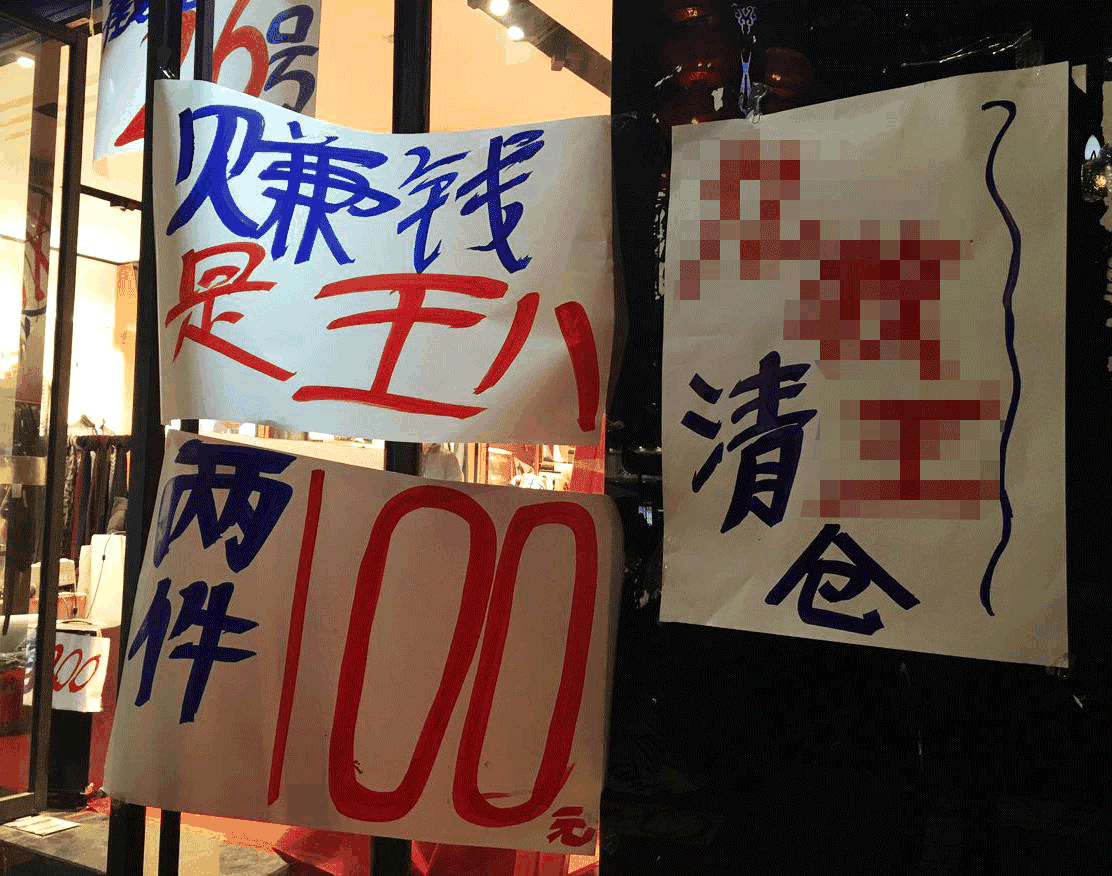 26号
赚钱
是王八
两件100元
清仓